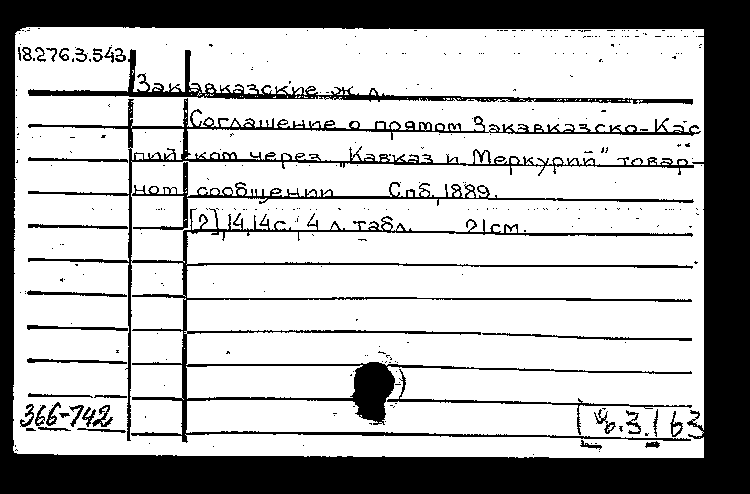 18.276.3.543.
Закавказские ж. д.
Соглашение о прямом Закавказско-Кас
пийском через „Кавказ и Меркурий" товар-
ном сообщении Спб., 1889.
[2], 14, 14 с., 4 л. табл. 21 см.
366-742